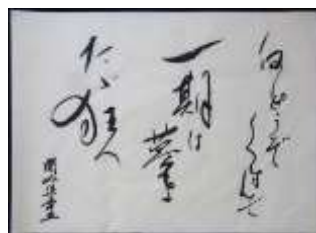 何せうぞ
くすんで
一期は
夢よ
たゞ
狂へ
閑吟集